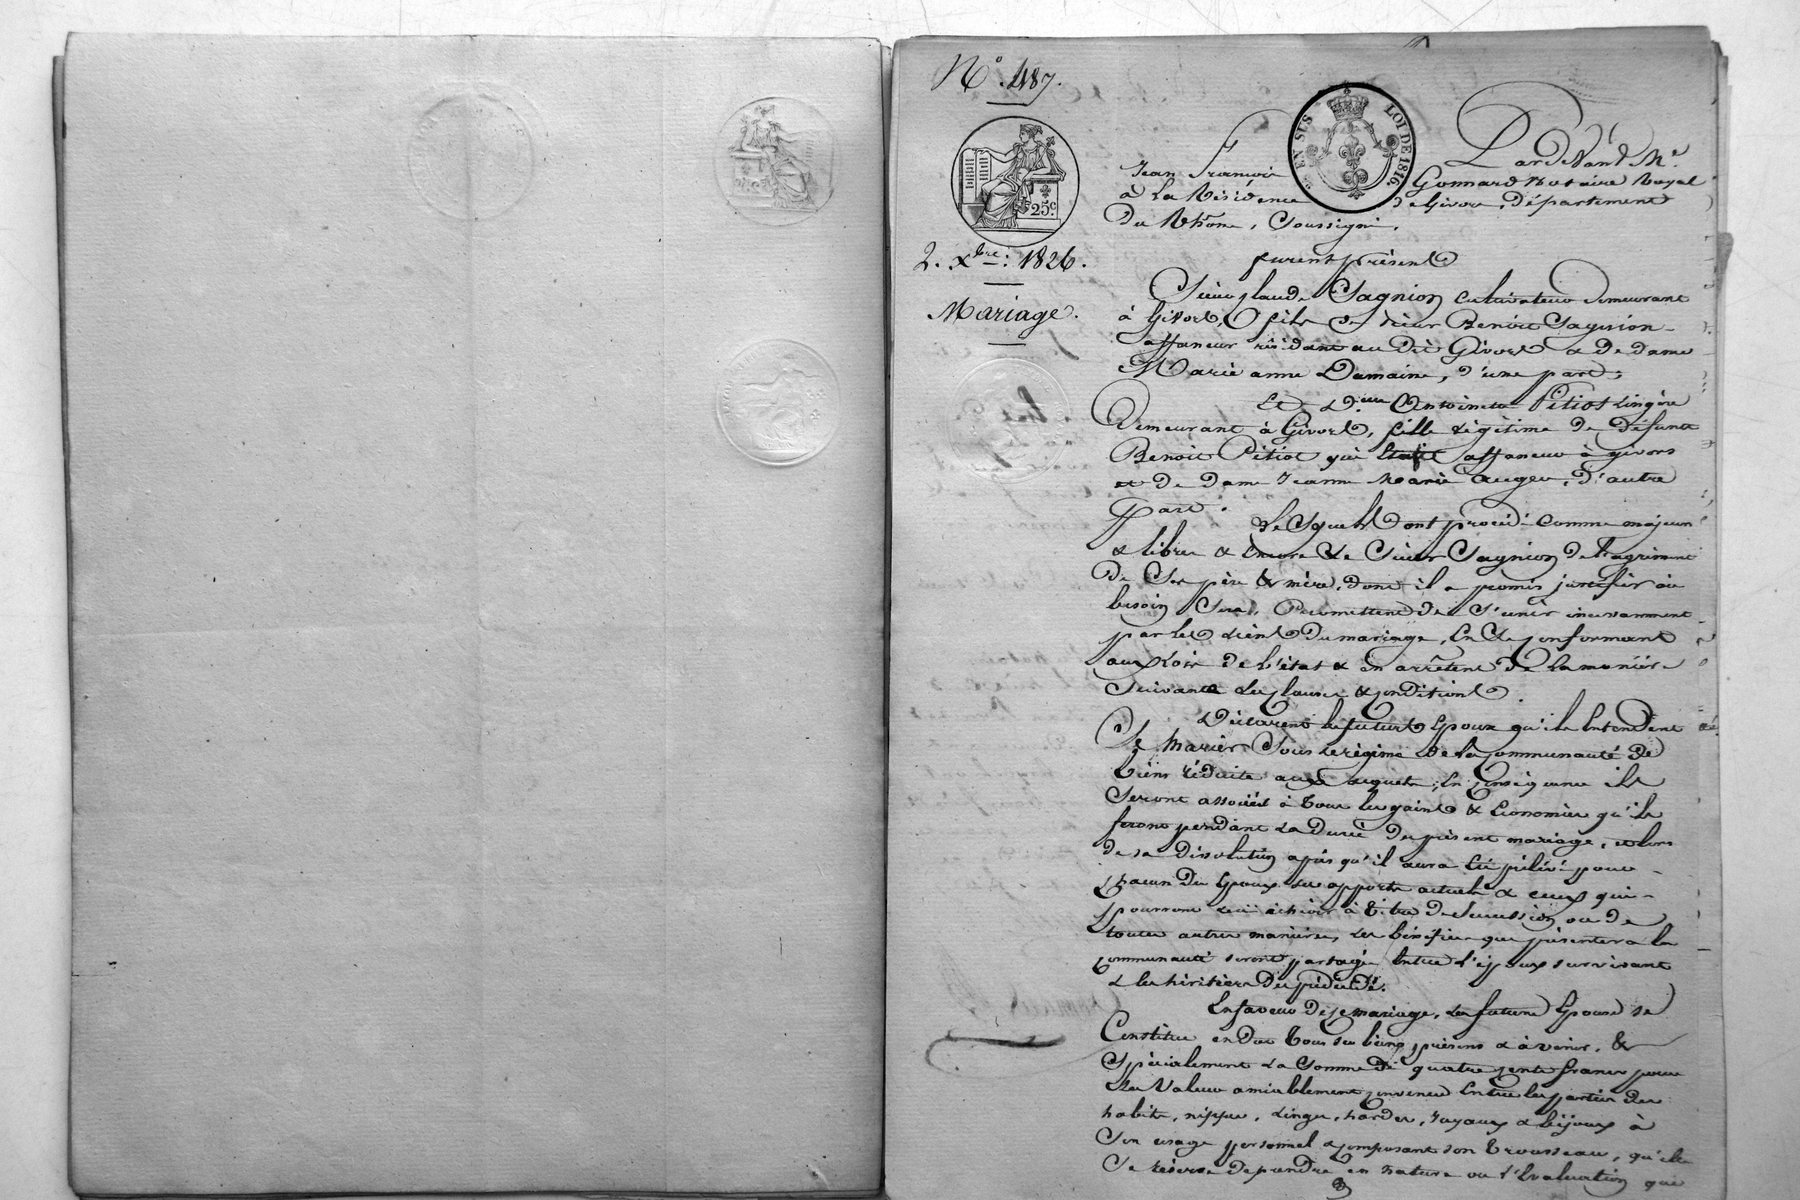 N.° 487.
EN SUS
LOI DE 1816
25.c
2. Xbre: 1826.
Mariage.
Pardevant Me.
Jean François Gonnard Notaire Royal
à La Résidence de Givors, Département
Du Rhône, Soussigné.
furent présents
Sieur Claude Sagnion cultivateur demeurant
à Givors, fils de sieur Benoit Sagnion
affaneur résidant au dit Givors & de dame
Marie anne Damaine, d'une part;
Et D.elle Antoinette Pitiot Lingère
Demeurant à Givors, fille légitime de défunt
Benoit Pitiot qui était affaneur à givors
et de dame Jeanne Marie auger, d'autre
part.
Lesquels ont procédé comme majeurs
& libres & encore le Sieur Sagnion de l'agrément
De Ses père & mère, dont il a promis justifier où
besoin Sera, Promettent de S'unir incessamment
par les liens du mariage, En Se conformant
aux Loix de l'état & en arrêtent de la manière
Suivante Les clauses & conditions.
Déclarent les futurs Epoux qu'ils Entendent
Se Marier Sous le régime de la communauté de
biens réduite aux acquets; En conséquence ils
Seront associés à tous les gains & Economies qu'ils
feront pendant la durée du présent mariage, et lors
de sa dissolution après qu'il aura été prélevé pour
chacun des Epoux ses apports actuels & ceux qui
pourront lui échoir à titre de Succession ou de
toutes autres manières, les bénéfices que présentera la
communauté seront partagés Entre l'époux survivant
& les héritiers du prédécédé.
En faveur de ce mariage, La future Epouse se
Constitue en dot tous ses biens présens & à venir, &
Spécialement La Somme de quatre cents francs pour
La Valeur amiablement convenue Entre les parties des
habits, nippes, linges, hardes, joyaux & bijoux à
Son usage personnel & composant son trousseau, qu'elle
Se réserve de prendre en nature ou L'Evaluation qui